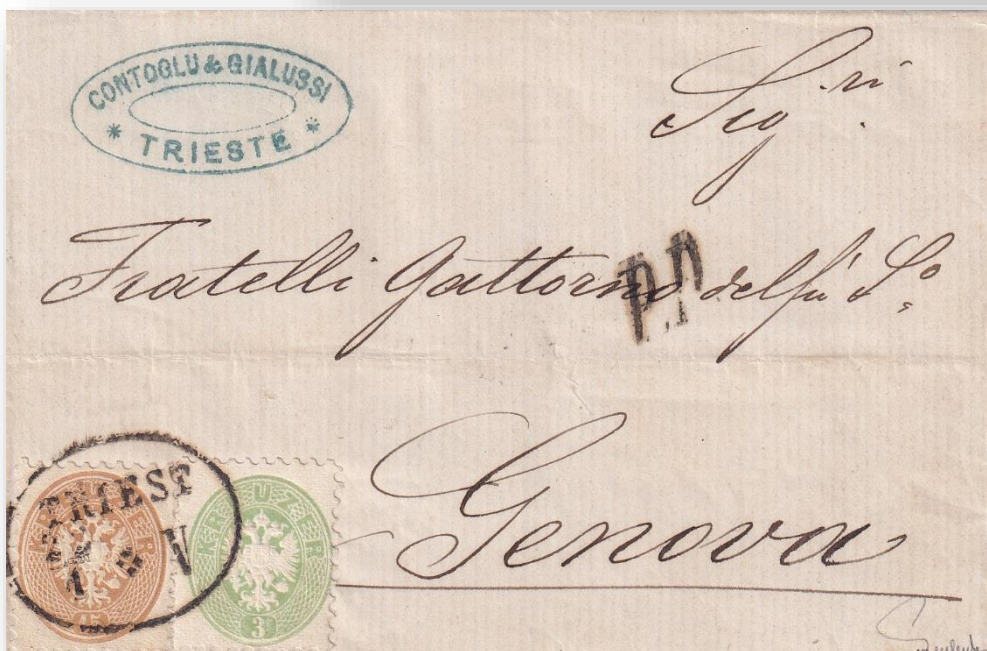 CONTOGLU & GIALUSSI
* TRIESTE *
Sig.ri
Fratelli Gattorno del fu
P.P.
Genova
TRIEST
KREUZER
15
KREUZER
3